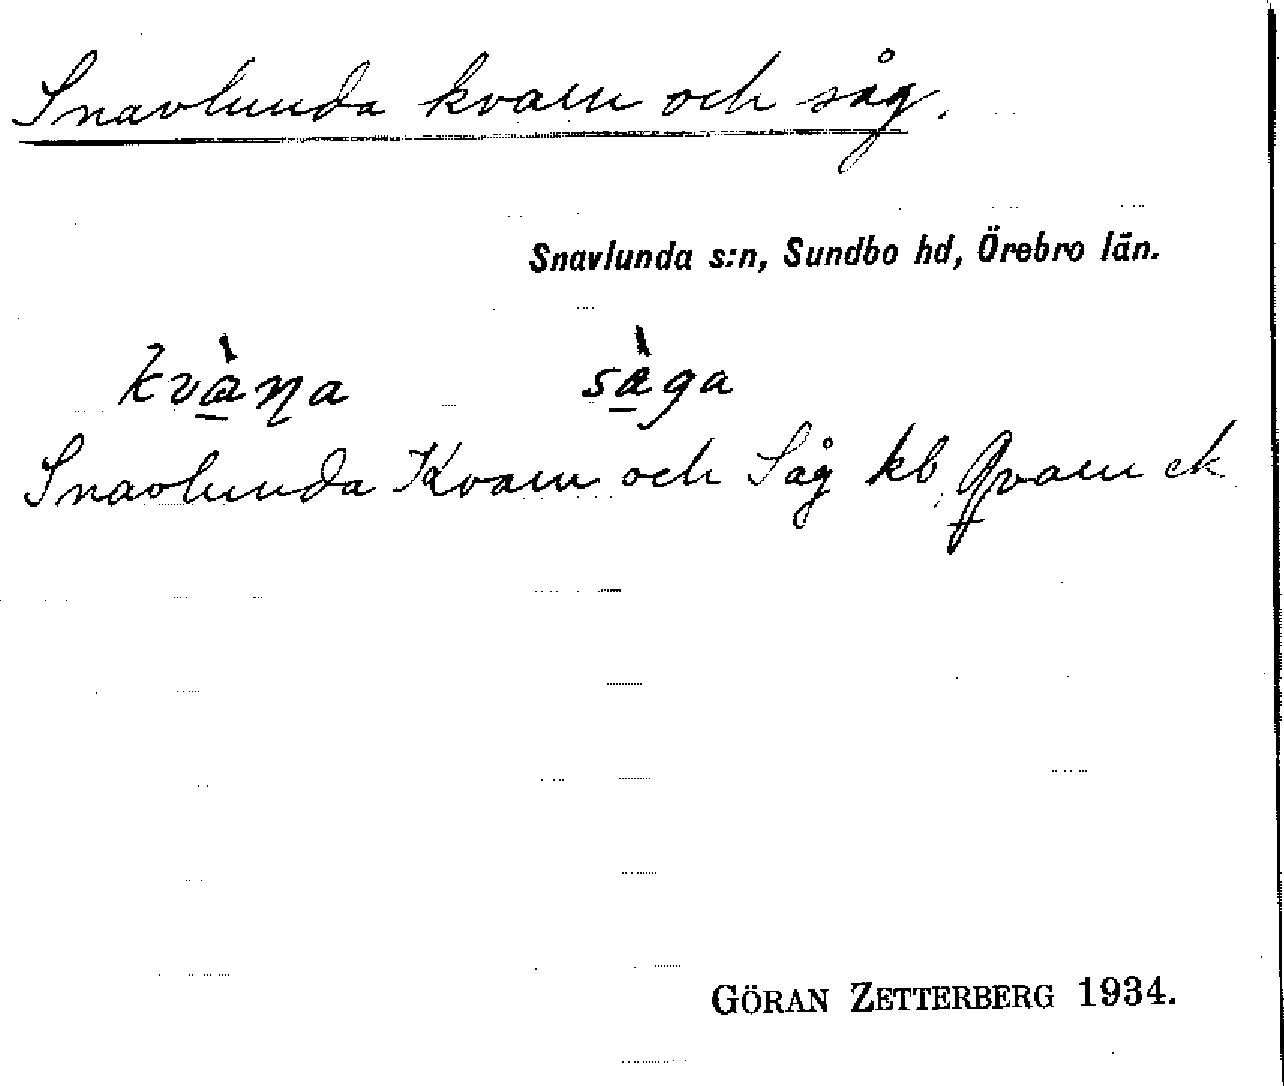 Snavlunda kvarn och såg.
Snavlunda s:n, Sundbo hd, Örebro län.
kvàɳa sàga
Snavlunda Kvarn och Såg kb, Qvarn ek
GÖRAN ZETTERBERG 1934.